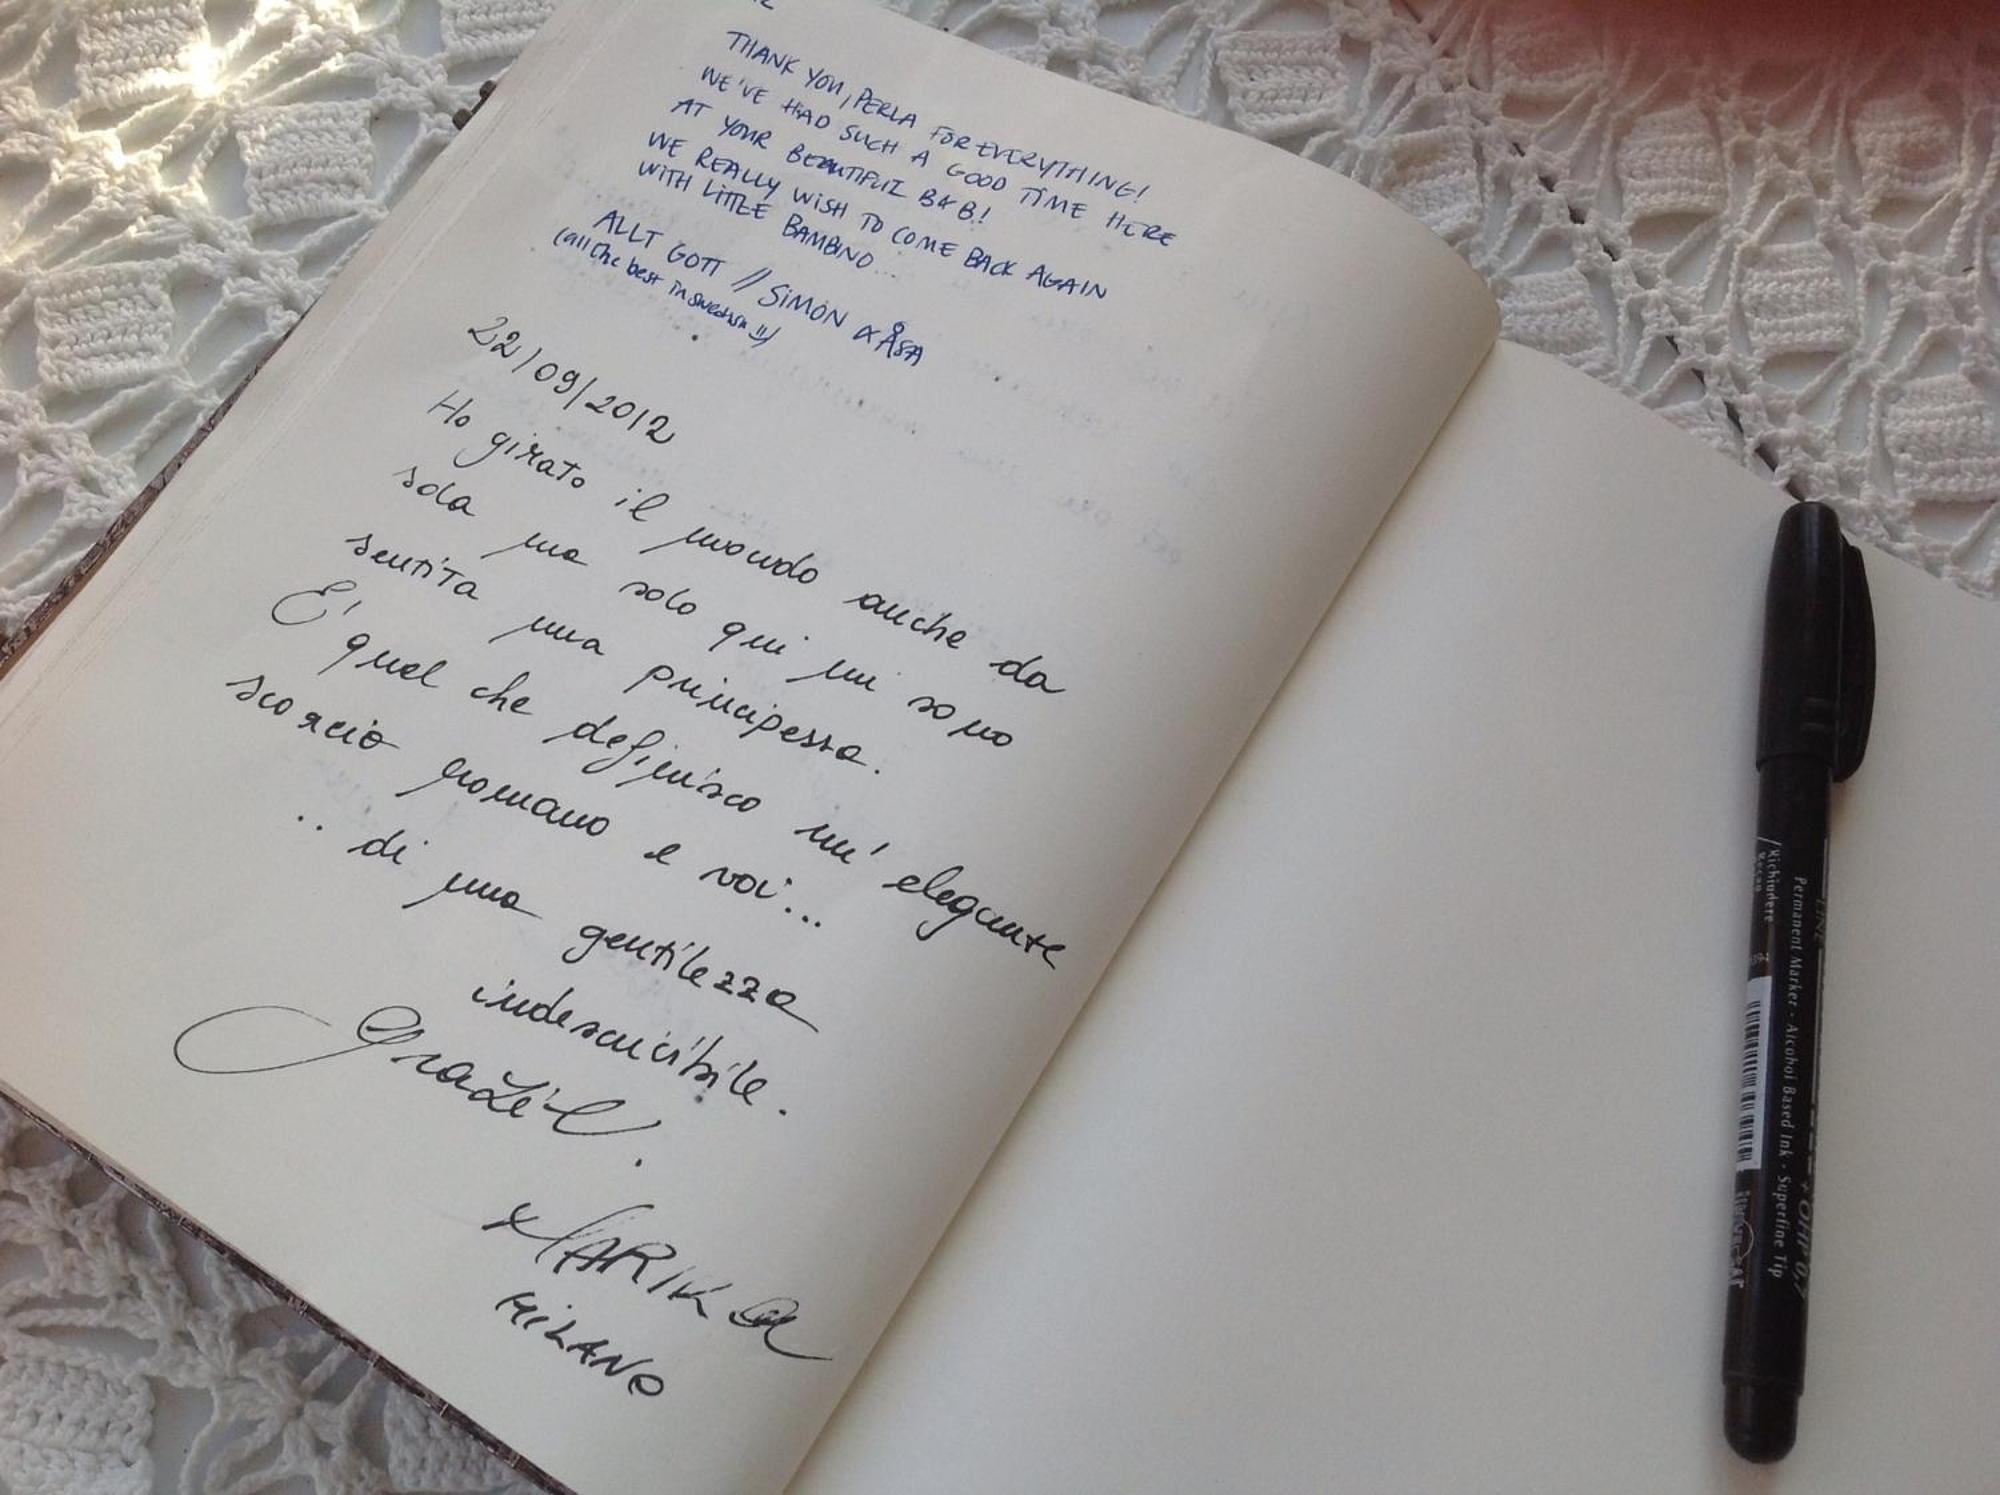 THANK YOU, PERLA FOR EVERYTHING!
WE'VE HAD SUCH A GOOD TIME HERE
AT YOUR BEAUTIFUL B&B!
WE REALLY WISH TO COME BACK AGAIN
WITH LITTLE BAMBINO...
ALLT GOTT // SIMON & ÅSA
(all the best in swedish !!)
22/09/2012
Ho girato il mondo anche da
sola ma solo qui mi sono
sentita una principessa.
E' quel che definisco un' elegante
scorcio romano e voi...
.. di una gentilezza
indescrivibile.
Grazie.
MARIKA
MILANO
Richiudere
Permanent Marker - Alcohol Based Ink - Superfine Tip
+OHP 0,7